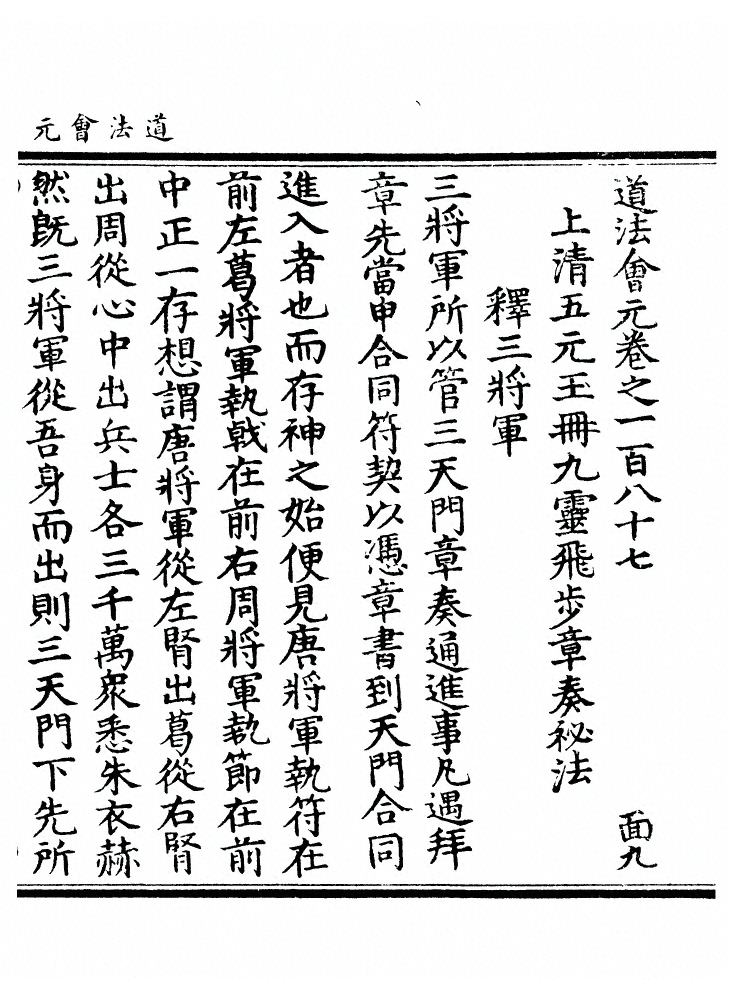 道法會元
道法會元卷之一百八十七 面九
上清五元玉冊九靈飛步章奏祕法
釋三將軍
三將軍所以管三天門章奏通進事凡遇拜
章先當申合同符契以憑章書到天門合同
進入者也而存神之始便見唐將軍執符在
前左葛將軍執戟在前右周將軍執節在前
中正一存想謂唐將軍從左腎出葛從右腎
出周從心中出兵士各三千萬眾悉朱衣赫
然既三將軍從吾身而出則三天門下先所